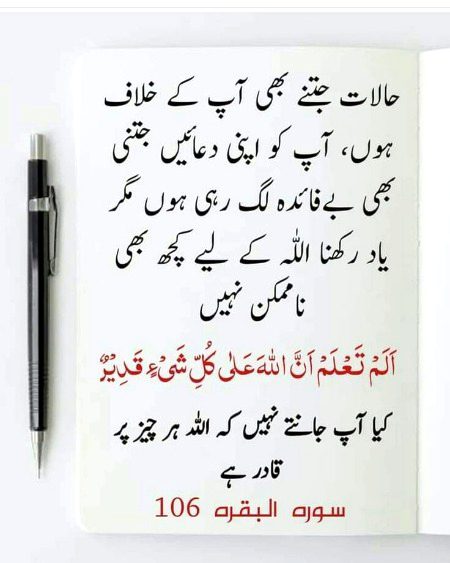 حالات جتنے بھی آپ کے خلاف
ہوں، آپ کو اپنی دعائیں جتنی
بھی بےفائدہ لگ رہی ہوں مگر
یاد رکھنا اللہ کے لیے کچھ بھی
ناممکن نہیں
اَلَمْ تَعْلَمْ اَنَّ اللّٰهَ عَلٰى كُلِّ شَیْءٍ قَدِیْرٌ
کیا آپ جانتے نہیں کہ اللہ ہر چیز پر
قادر ہے
سورہ البقرہ 106